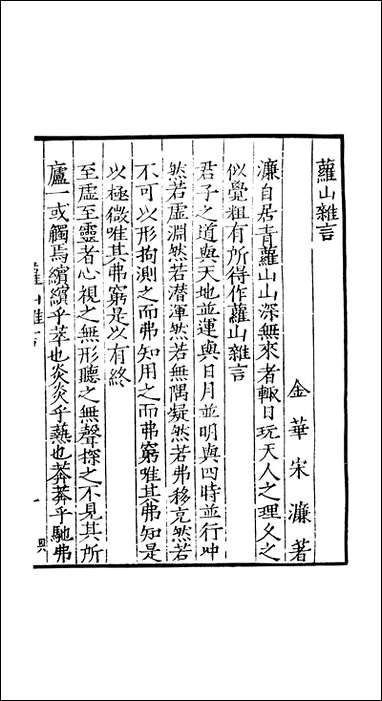 蘿山雜言
金華宋濂著
濂自居青蘿山山深無來者輙日玩天人之理久之
似覺粗有所得作蘿山雜言
君子之道與天地並運與日月並明與四時並行冲
然若虛淵然若潜渾然若無隅凝然若弗移充然若
不可以形拘測之而弗知用之而弗窮唯其弗知是
以極微唯其弗窮是以有終
至虛至靈者心視之無形聽之無聲探之不見其所
廬一或觸焉繽繽乎萃也炎炎乎𤍠也莽莽乎馳弗
蘿山雜言
一